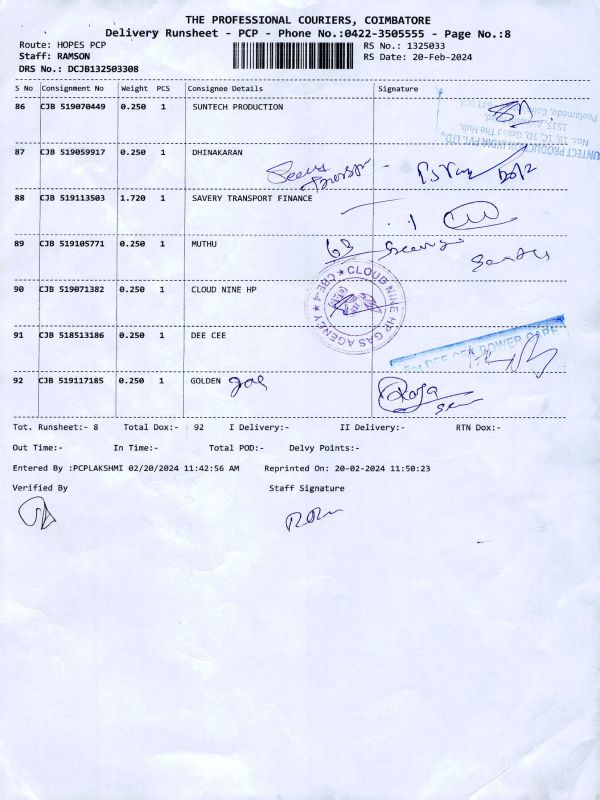 THE PROFESSIONAL COURIERS, COIMBATORE
Delivery Runsheet - PCP - Phone No.:0422-3505555 - Page No.:8
Route: HOPES PCP RS No.: 1325033
Staff: RAMSON RS Date: 20-Feb-2024
DRS No.: DCJB132503308
S No Consignment No Weight PCS Consignee Details Signature
86 CJB 519070449 0.250 1 SUNTECH PRODUCTION
87 CJB 519059917 0.250 1 DHINAKARAN
88 CJB 519113503 1.720 1 SAVERY TRANSPORT FINANCE
89 CJB 519105771 0.250 1 MUTHU
90 CJB 519071382 0.250 1 CLOUD NINE HP
CLOUD NINE HP GAS AGENCY ★ CBE-4 ★
91 CJB 518513186 0.250 1 DEE CEE
For DEE CEE POWER CARE
92 CJB 519117185 0.250 1 GOLDEN
Raja
Tot. Runsheet:- 8 Total Dox:- 92 I Delivery:- II Delivery:- RTN Dox:-
Out Time:- In Time:- Total POD:- Delvy Points:-
Entered By :PCPLAKSHMI 02/20/2024 11:42:56 AM Reprinted On: 20-02-2024 11:50:23
Verified By Staff Signature